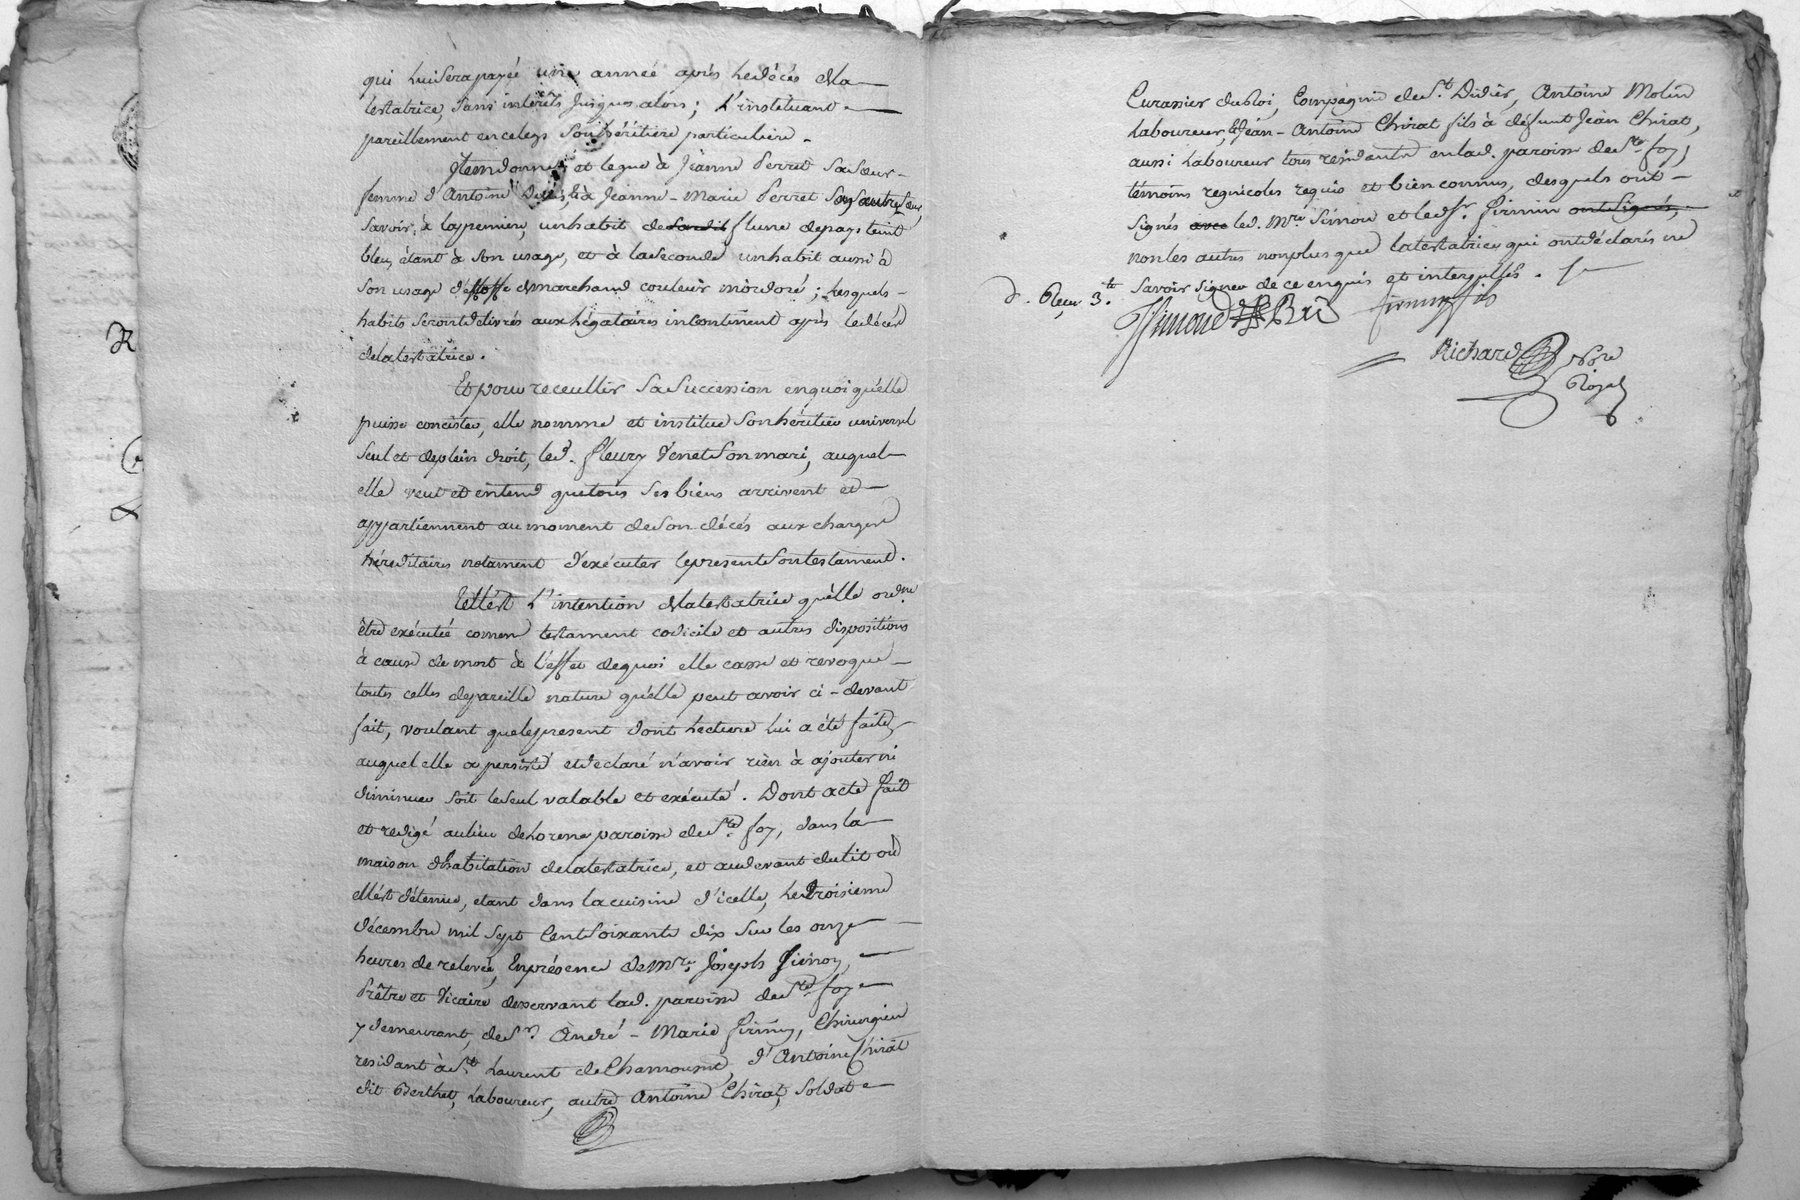 qui lui sera payée une année après le décès de la
testatrice, sans intérêts jusques alors ; L'instituant
pareillement en ce legs son héritière particulière.
Item donne et legue à Jeanne Perret sa sœur
femme d'Antoine & à Jeanne-Marie Perret son autre sœur,
savoir, à la premiere, un habit de sardit flune de pays teint
bleu, étant à son usage, et à la seconde un habit aussi à
son usage d'étoffe de marchand couleur mordoré ; lesquels
habits seront délivrés aux légataires incontinent après le décès
de la testatrice.
Et pour receullir sa succession en quoi qu'elle
puisse concister, elle nomme et institue son héritier universel
seul et de plein droit, led. fleury Venet son mari, auquel
elle veut et entend que tous ses biens arrivent et
appartiennent au moment de son décès aux charges
héréditaires notament d'exécuter le present son testament.
Telle est l'intention de la testatrice qu'elle ordne
être exécutée comme testament codicile et autres dispositions
à cause de mort à l'effet de quoi elle casse et revoque
toutes celles de pareille nature qu'elle peut avoir ci-devant
fait, voulant que le present dont lecture lui a été faite
auquel elle a persisté et declaré n'avoir rien à ajouter ni
diminuer soit le seul valable et exécuté. Dont acte fait
et redigé au lieu de Lorene paroisse de Ste. foy, dans la
maison d'habitation de la testatrice, et au devant du lit où
elle est détenue, etant dans la cuisine d'icelle, le troisieme
décembre mil sept cent soixante dix sur les onze
heures de relevée, En présence de Mre. Joseph Simon,
Prêtre et Vicaire desservant lad. paroisse de Ste. foy
y demeurant, de Sr. André-Marie firmin, Chirurgien
residant à St. Laurent de Chamousset, d'Antoine Chirat
dit Berthet, Laboureur, autre Antoine Chirat, soldat
Curassier du Roi, Compagnie de St. Didier, Antoine Molin
Laboureur, & Jean-Antoine Chirat fils à défunt Jean Chirat,
aussi Laboureur tous residants en lad. paroisse de Ste. foy,
témoins regnicoles requis et bien connus, desquels ont
signés avec led. Mre Simon et led. Sr. firmin ont signés,
non les autres non plus que la testatrice qui ont déclarés ne
savoir signer de ce enquis et interpellés.
d. Reçu 3.tt
Simond firmin fils
Richard Nore
Royal